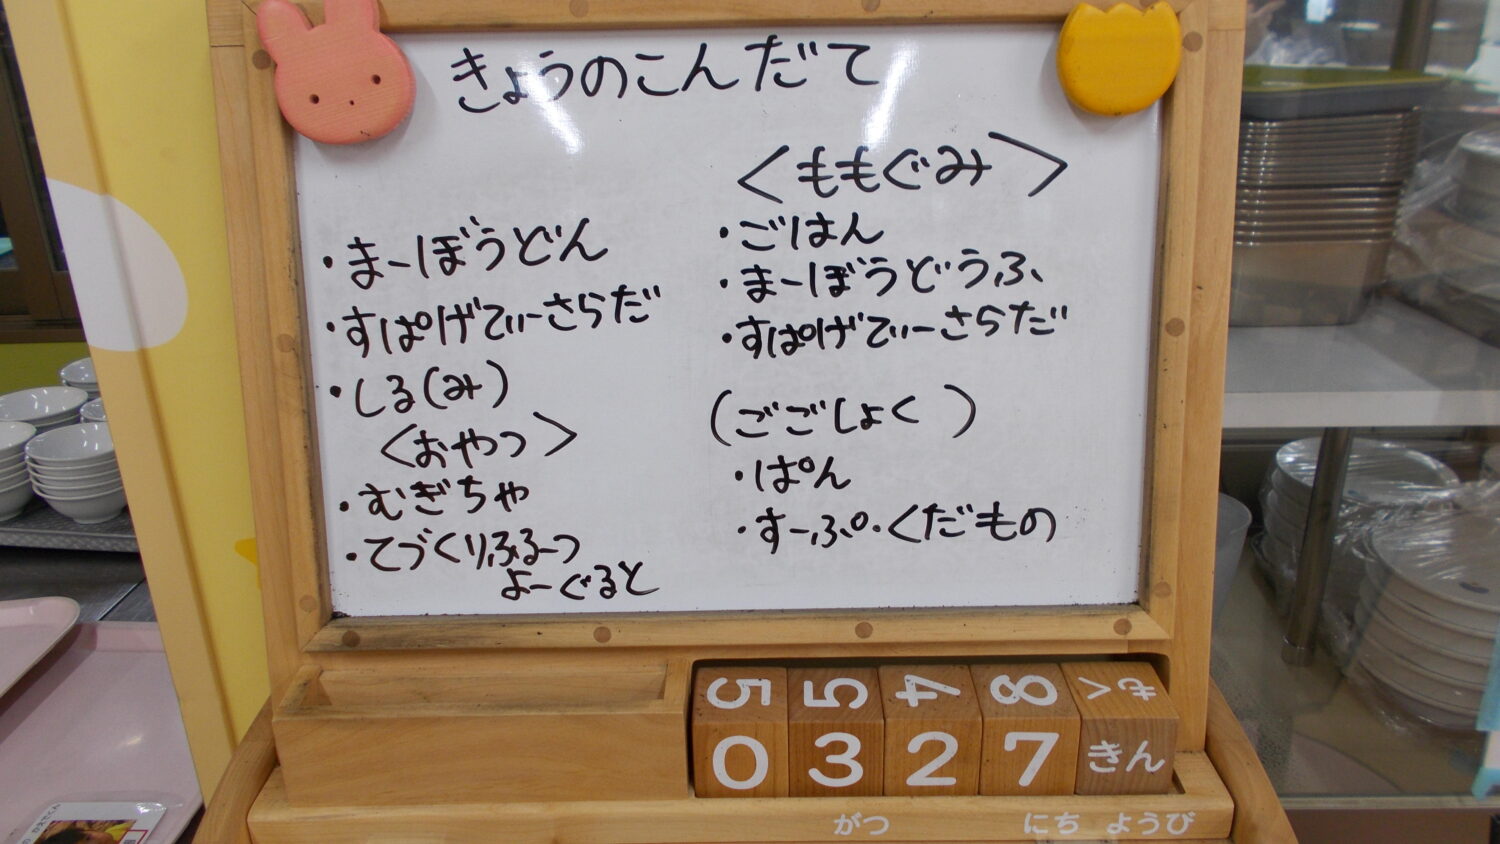 きょうのこんだて
・まーぼうどん
・すぱげてぃーさらだ
・しる(み)
<おやつ>
・むぎちゃ
・てづくりふるーつ
よーぐると
<ももぐみ>
・ごはん
・まーぼうどうふ
・すぱげてぃーさらだ
(ごごしょく)
・ぱん
・すーぷ・くだもの
5 5 4 8 もく
0 3 2 7 きん
がつ にち ようび